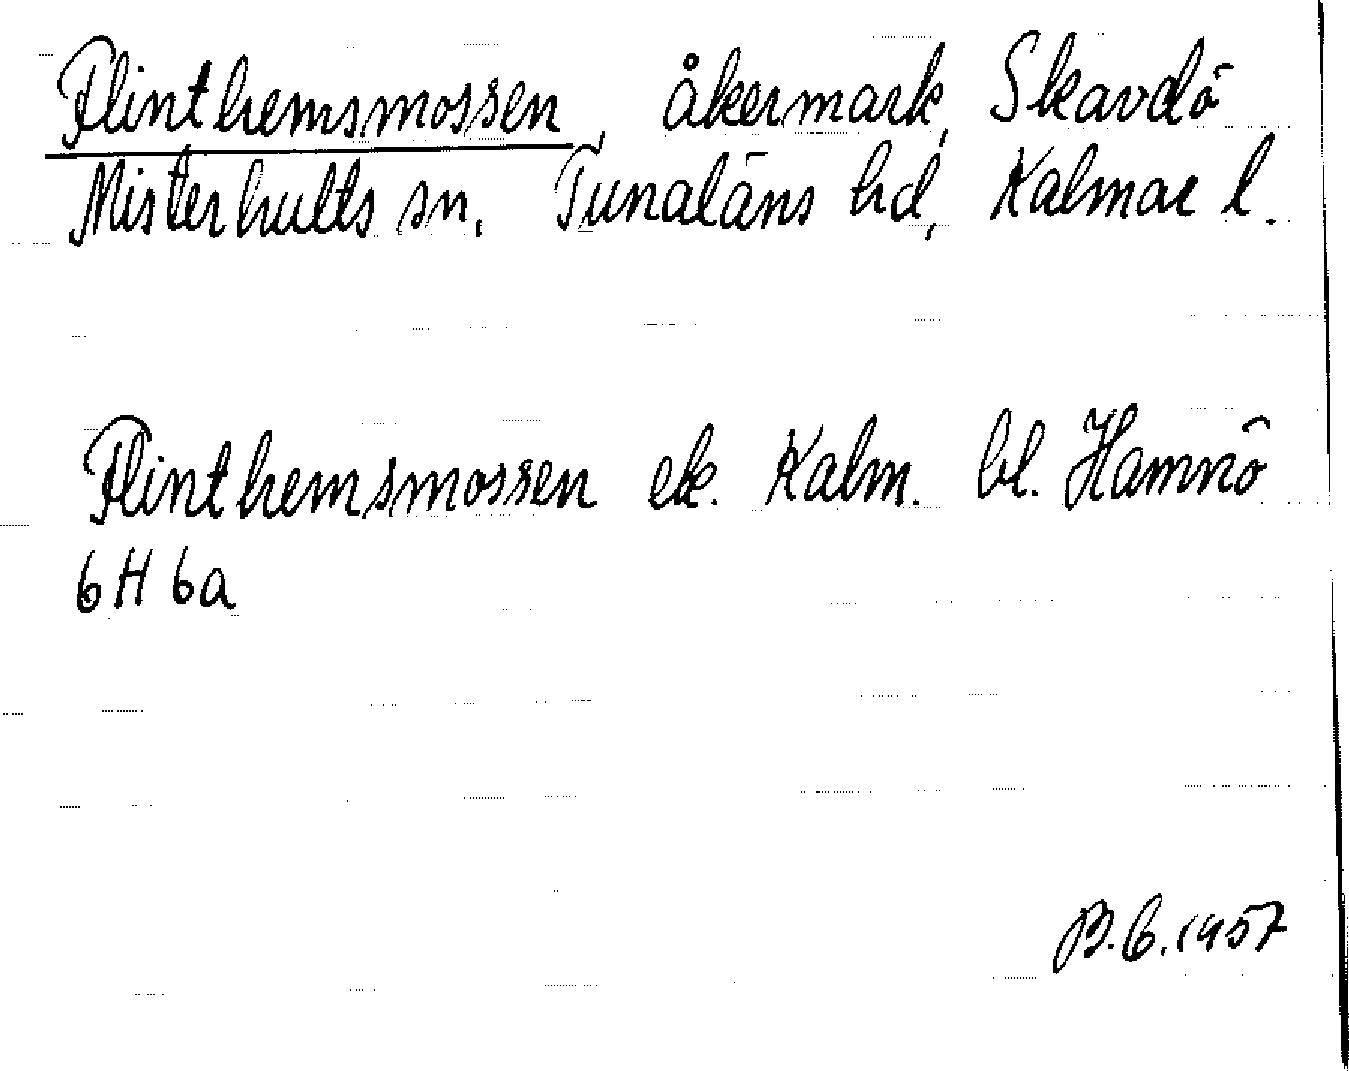 Flinthemsmossen, åkermark, Skavdö
Misterhults sn. Tunaläns hd, Kalmar l.
Flinthemsmossen ek. Kalm. bl. Hamnö
6H 6a
B.G. 1957